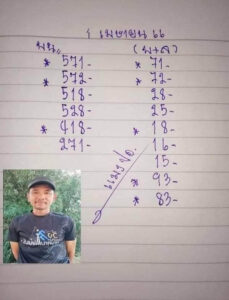 1 เมษายน 66
บน,, (บ+ล)
* 571- * 71-
* 572- * 72-
518- 28-
528- 25-
* 418- * 18-
271- 16-
15-
* 93-
* 83-